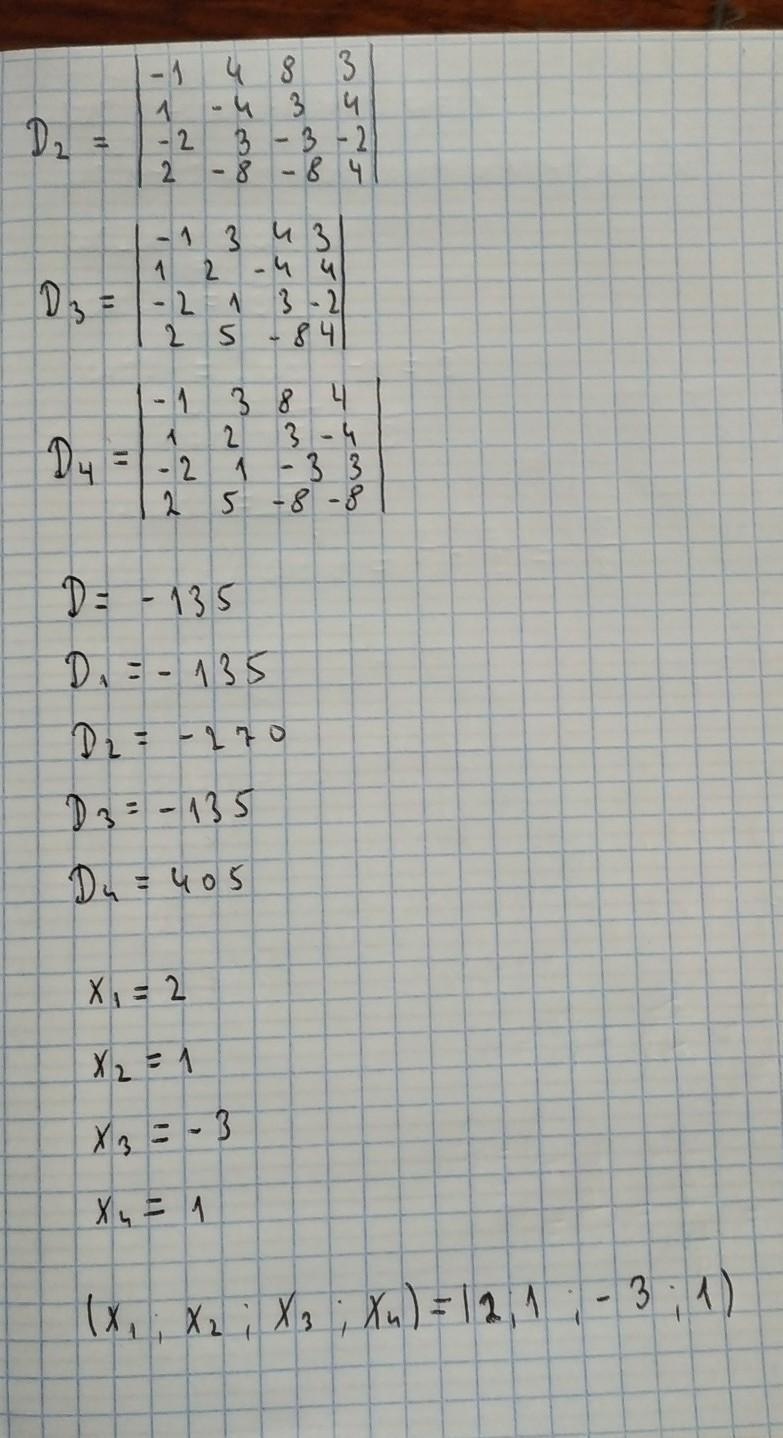 D₂ = | -1 4 8 3 |
| 1 -4 3 4 |
| -2 3 -3 -2 |
| 2 -8 -8 4 |
D₃ = | -1 3 4 3 |
| 1 2 -4 4 |
| -2 1 3 -2 |
| 2 5 -8 4 |
D₄ = | -1 3 8 4 |
| 1 2 3 -4 |
| -2 1 -3 3 |
| 2 5 -8 -8 |
D = -135
D₁ = -135
D₂ = -270
D₃ = -135
D₄ = 405
x₁ = 2
x₂ = 1
x₃ = -3
x₄ = 1
(x₁ ; x₂ ; x₃ ; x₄) = (2 ; 1 ; -3 ; 1)